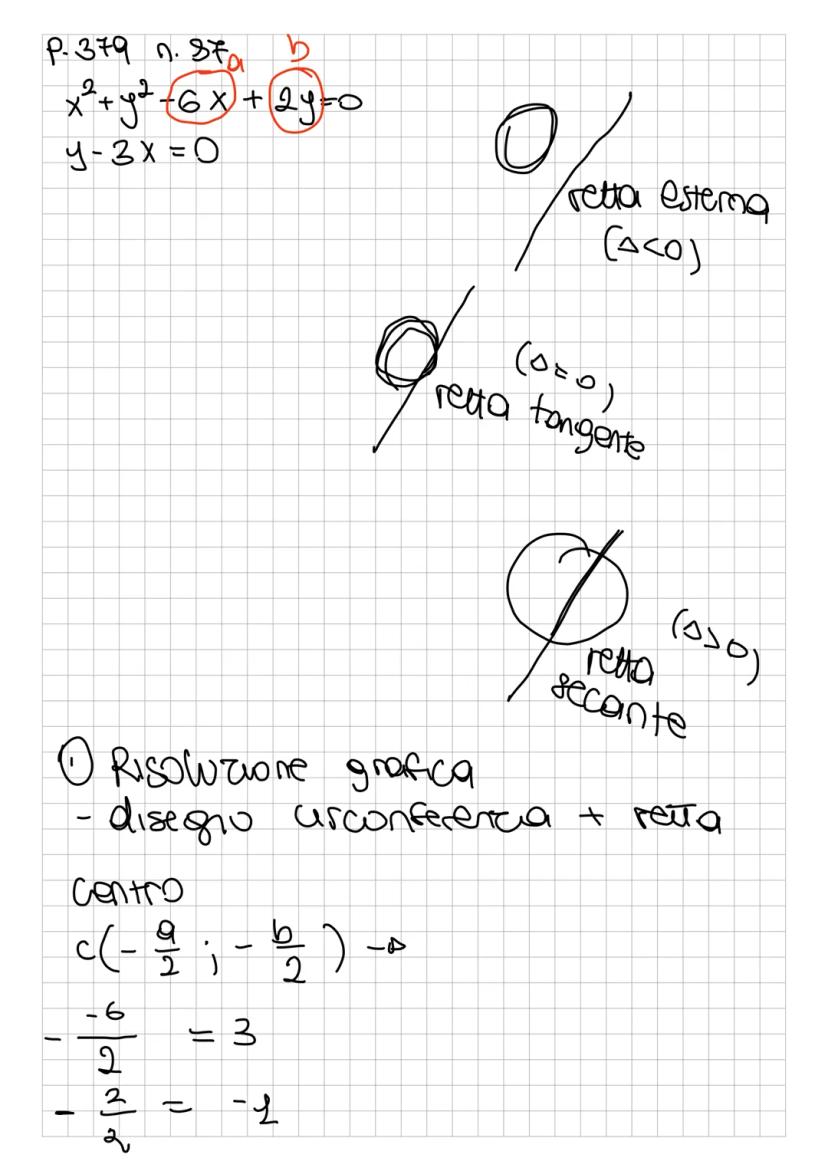 P. 379 n. 37
a b
x²+y²-6x+2y=0
y-3x=0
retta esterna
(Δ<0)
(Δ=0)
retta tangente
(Δ>0)
retta
secante
① Risoluzione grafica
- disegno circonferenza + retta
centro
C(-a/2 ; -b/2) →
- -6/2 = 3
- 2/2 = -1